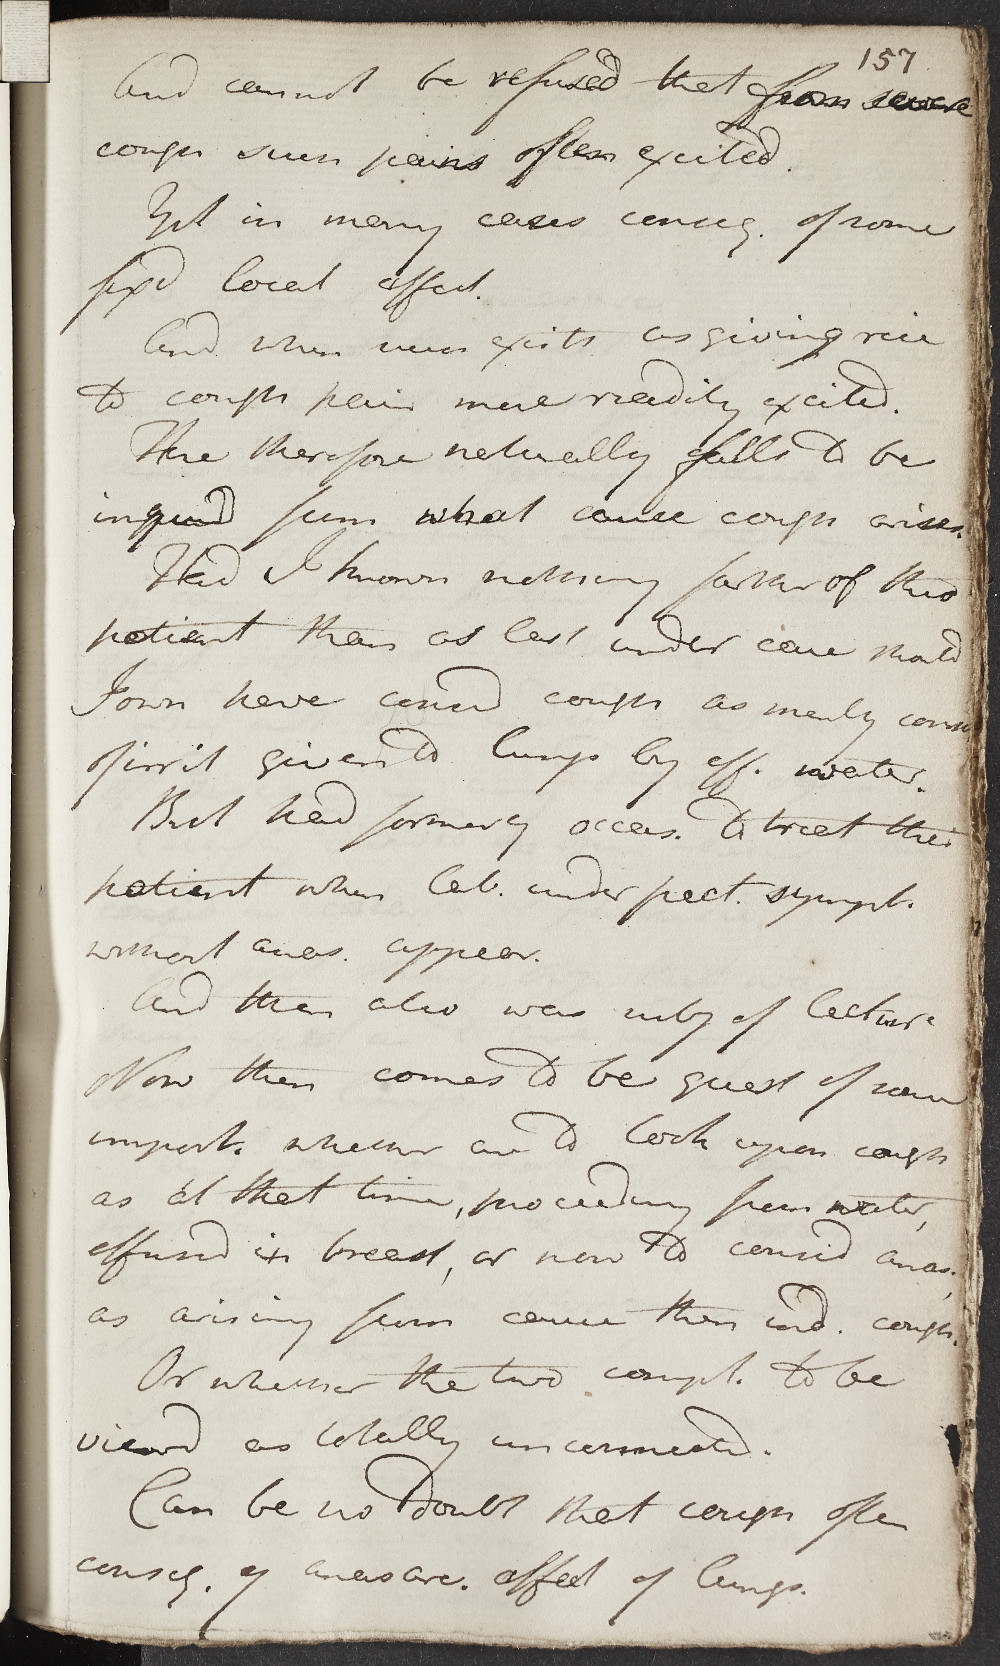 157
And cannot be refused that from severe
cough such pains often excited.
Yet in many cases conseq. of some
fix'd local affect.
And when such exists as giving rise
to cough pain more readily excited.
Here therefore naturally falls to be
inquird from what cause cough arises.
Had I known nothing farther of this
patient than as last under care should
I own have consid cough as merely conseq
of irrit given to lungs by eff. water.
But had formerly occas. to treat this
patient when lab. under pect. sympt.
without anas. appear.
And then also was subj of lecture
Now then comes to be quest of some
import. whether are to look upon cough
as at that time, proceeding from water,
effused in breast, or now to consid anas.
as arising from cause then ind. cough.
Or whether the two compl. to be
viewd as totally unconnected.
Can be no doubt that cough often
conseq. of anasarc. affect of lungs.